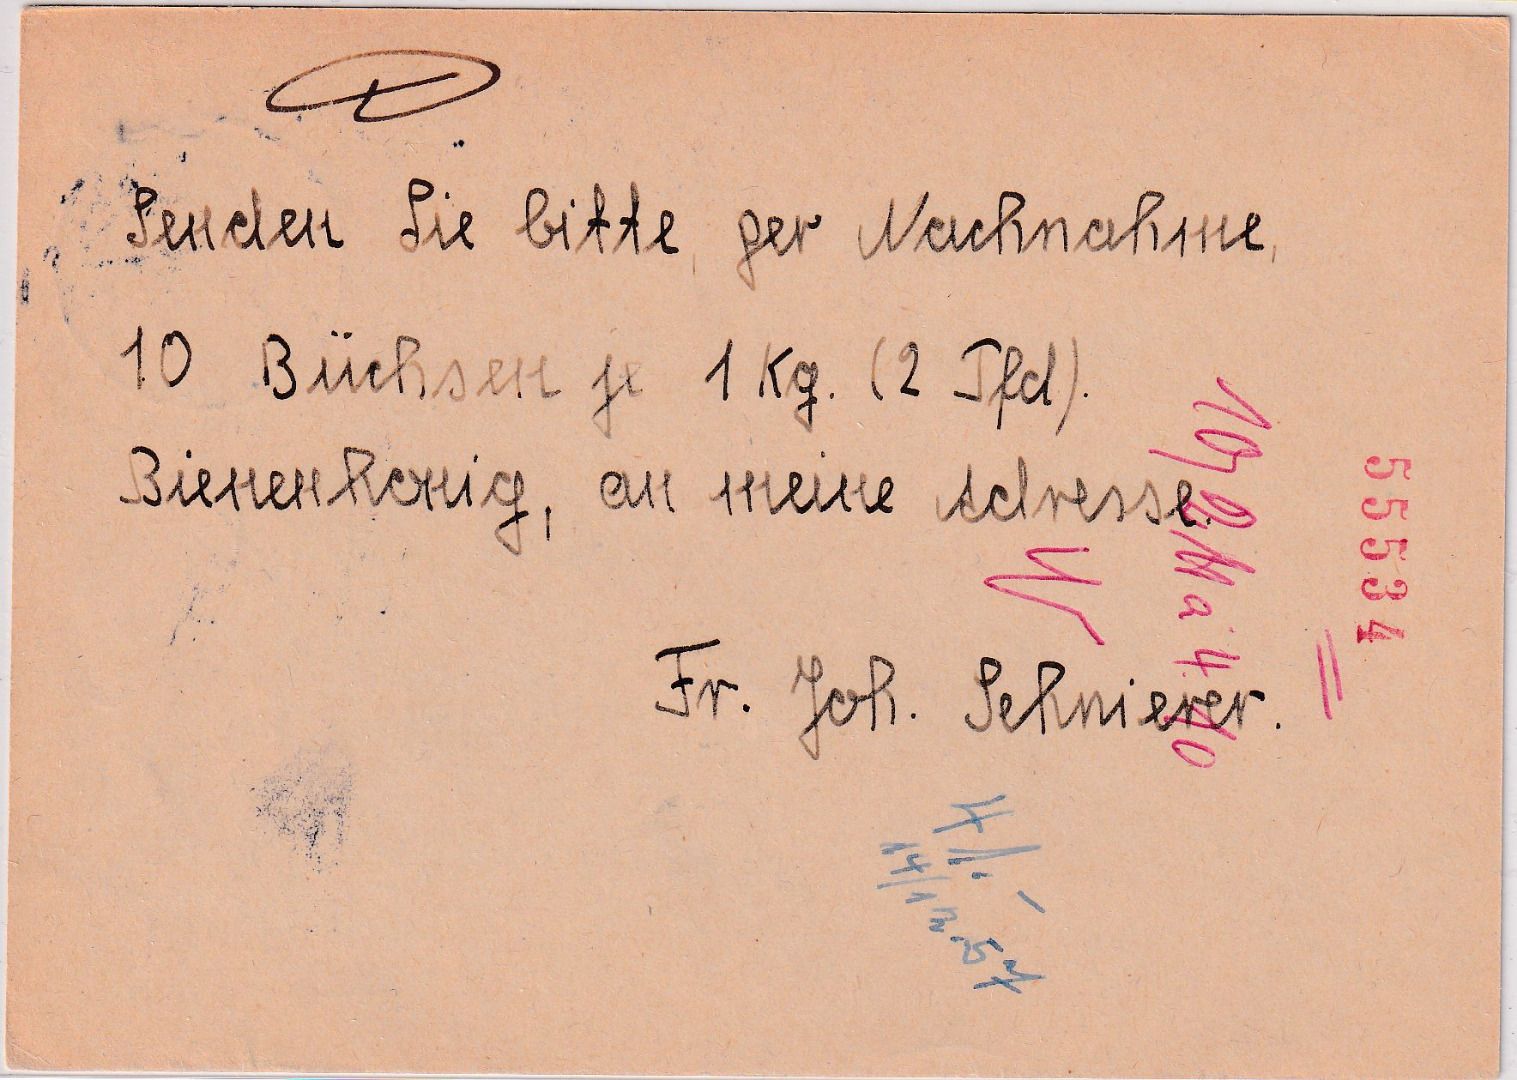 Senden Sie bitte, per Nachnahme,
10 Büchsen je 1 Kg. (2 Pfd).
Bienenhonig, an meine Adresse.
Fr. Joh. Schnierer.
55534
14/12.57